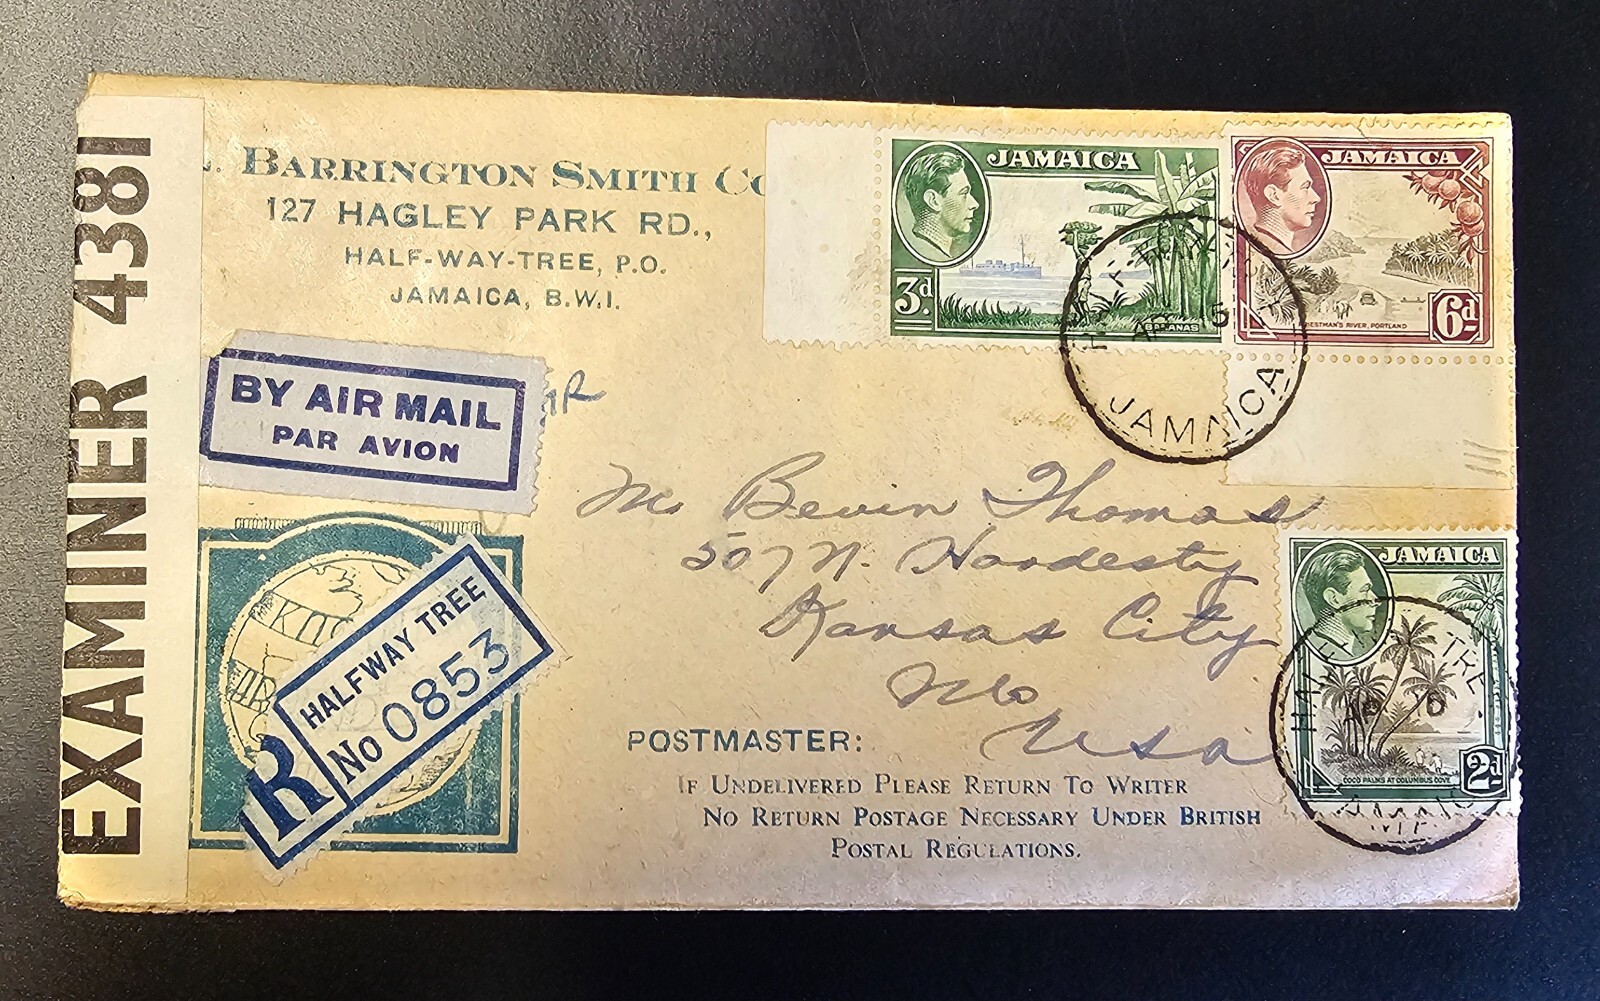 EXAMINER 4381
. BARRINGTON SMITH Co
127 HAGLEY PARK RD.,
HALF-WAY-TREE, P.O.
JAMAICA, B.W.I.
JAMAICA
3d
BANANAS
JAMAICA
6d
PORTLAND
JAMAICA
BY AIR MAIL
PAR AVION
Mr Bevin Thomas
507 N. Hardesty
Kansas City
Mo
USA
JAMAICA
COCO PALMS AT COLUMBUS COVE
2d
HALFWAY TREE
R No 0853
POSTMASTER:
IF UNDELIVERED PLEASE RETURN TO WRITER
NO RETURN POSTAGE NECESSARY UNDER BRITISH
POSTAL REGULATIONS.